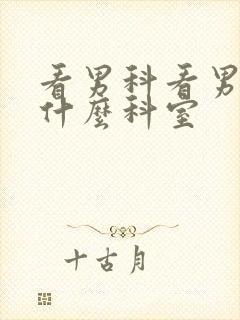 看男科看男
什麼科室
十古月